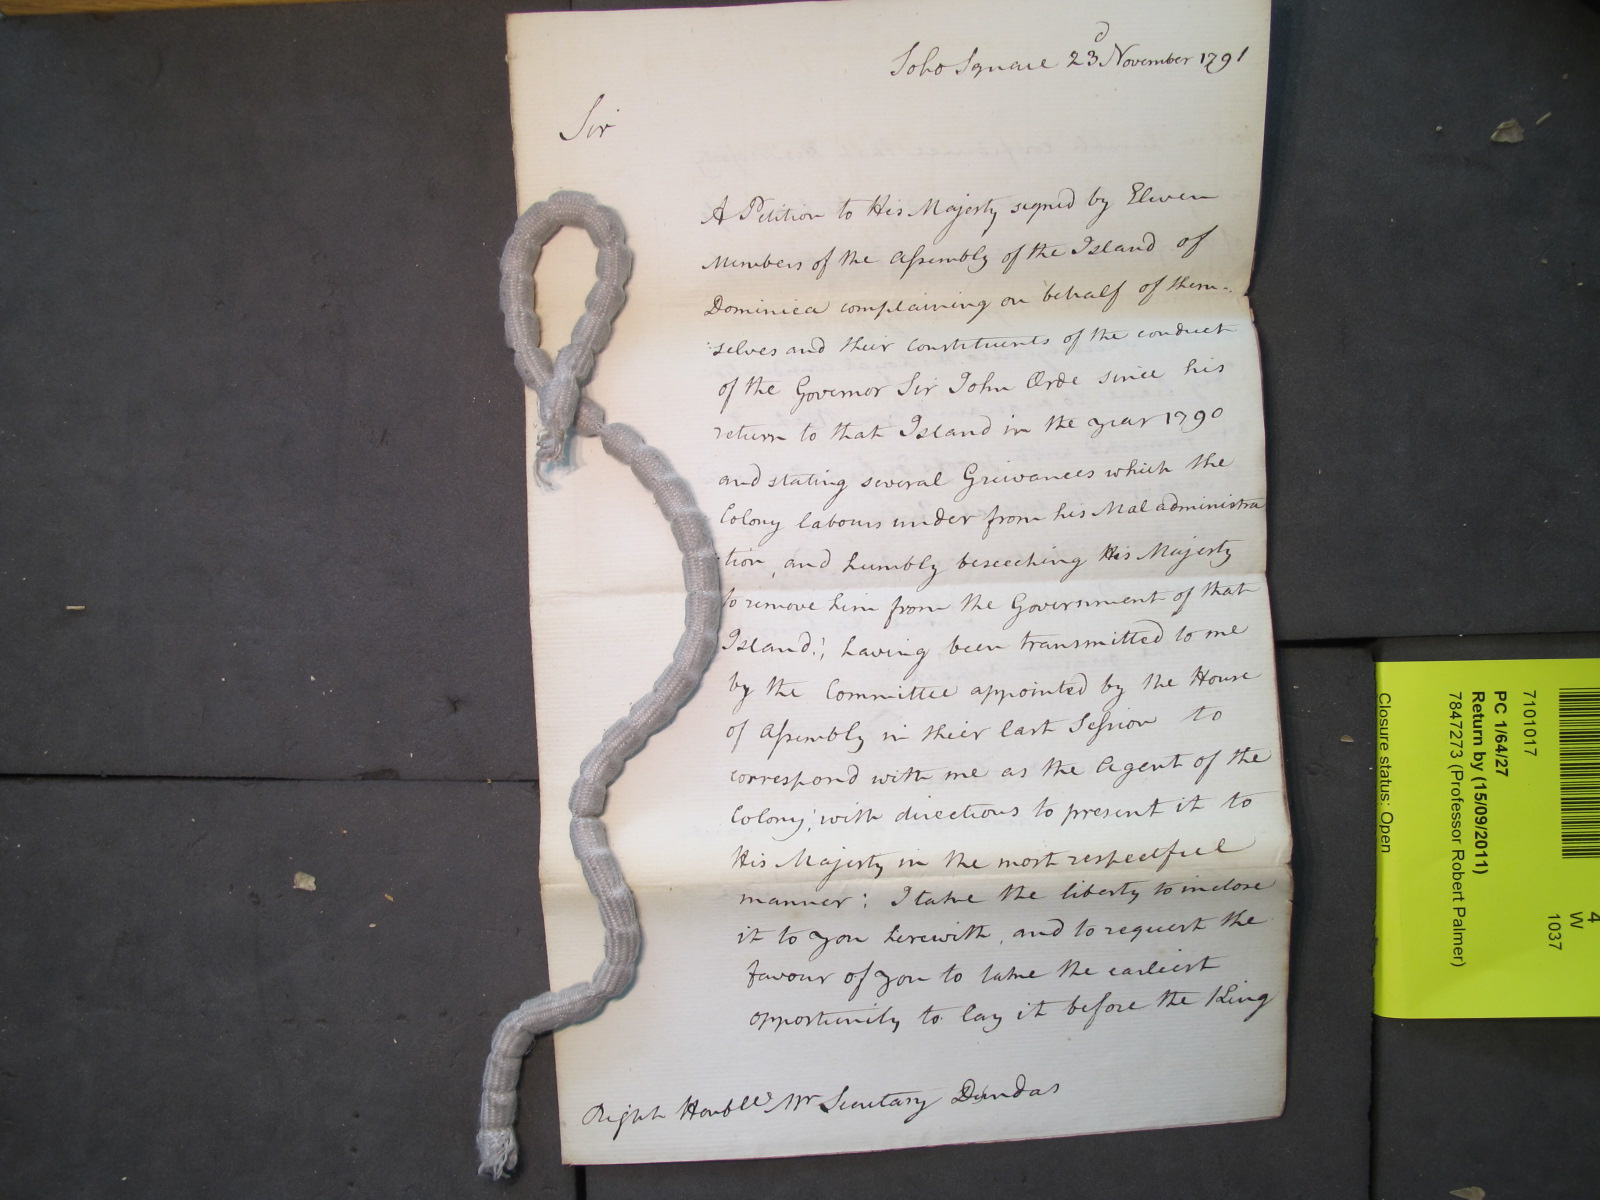 Soho Square 23d November 1791
Sir
A Petition to His Majesty signed by Eleven
Members of the Assembly of the Island of
Dominica complaining on behalf of them-
selves and their Constituents of the conduct
of the Governor Sir John Orde since his
return to that Island in the year 1790
and stating several Grievances which the
Colony labours under from his Mal administra
tion, and humbly beseeching His Majesty
to remove him from the Government of that
Island; having been transmitted to me
by the Committee appointed by the House
of Assembly in their last Session to
correspond with me as the Agent of the
Colony, with directions to present it to
His Majesty in the most respectful
manner; I take the liberty to inclose
it to you herewith, and to request the
favour of you to take the earliest
opportunity to lay it before the King
Right Honble Mr Secretary Dundas
4
W
1037
7101017
PC 1/64/27
Return by (15/09/2011)
7847273 (Professor Robert Palmer)
Closure status: Open